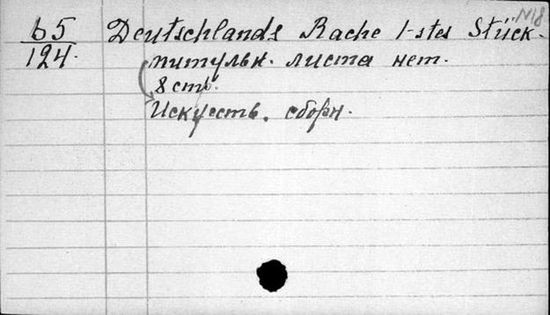 N18
65 Deutschlands Rache 1-stes Stück.
124. титульн. листа нет.
8 стр.
Искусств. сборн.